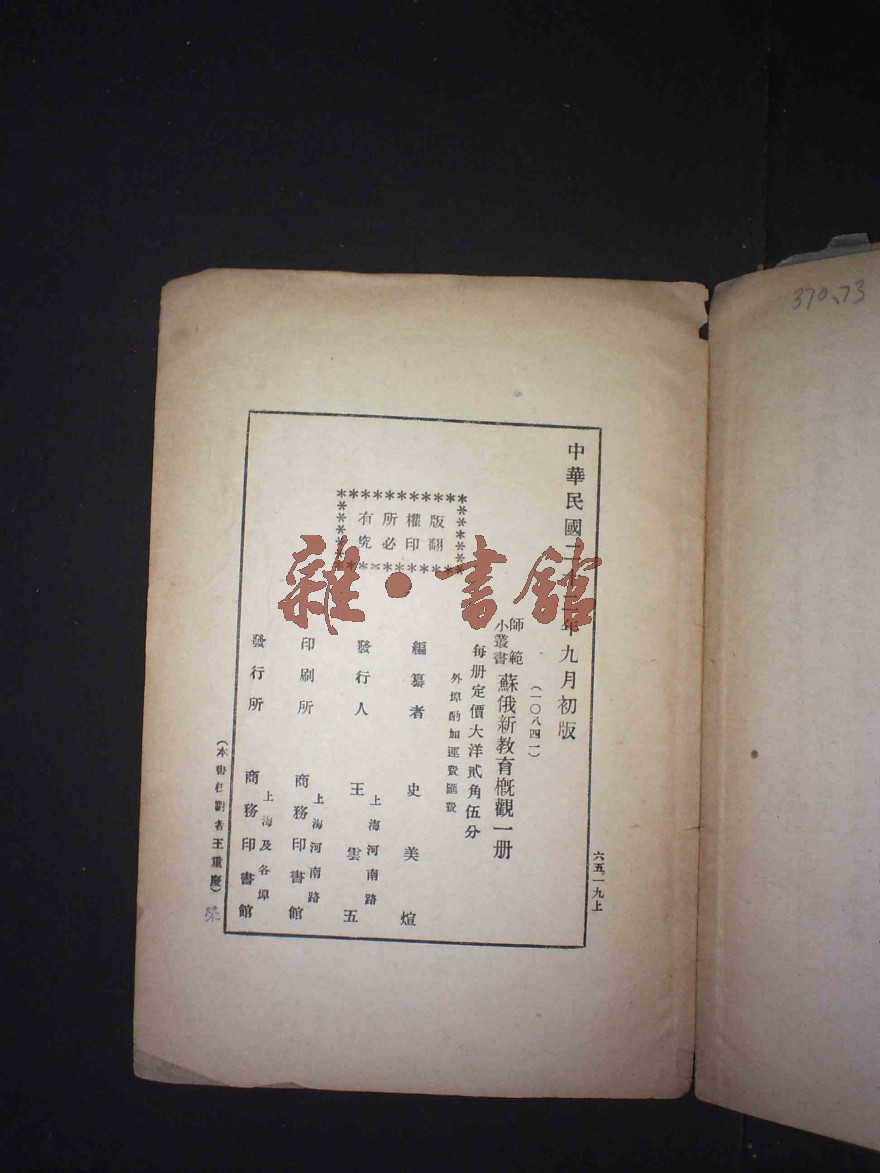 370.73
中華民國二十三年九月初版
(一〇八四一)
師範小叢書
蘇俄新教育概觀一册
每册定價大洋貳角伍分
外埠酌加運費匯費
版權所有
翻印必究
編纂者 史美煊
發行人 王雲五
上海河南路
印刷所 商務印書館
上海河南路
發行所 商務印書館
上海及各埠
(本書校對者王重慶)
六五一九上
雜·書館